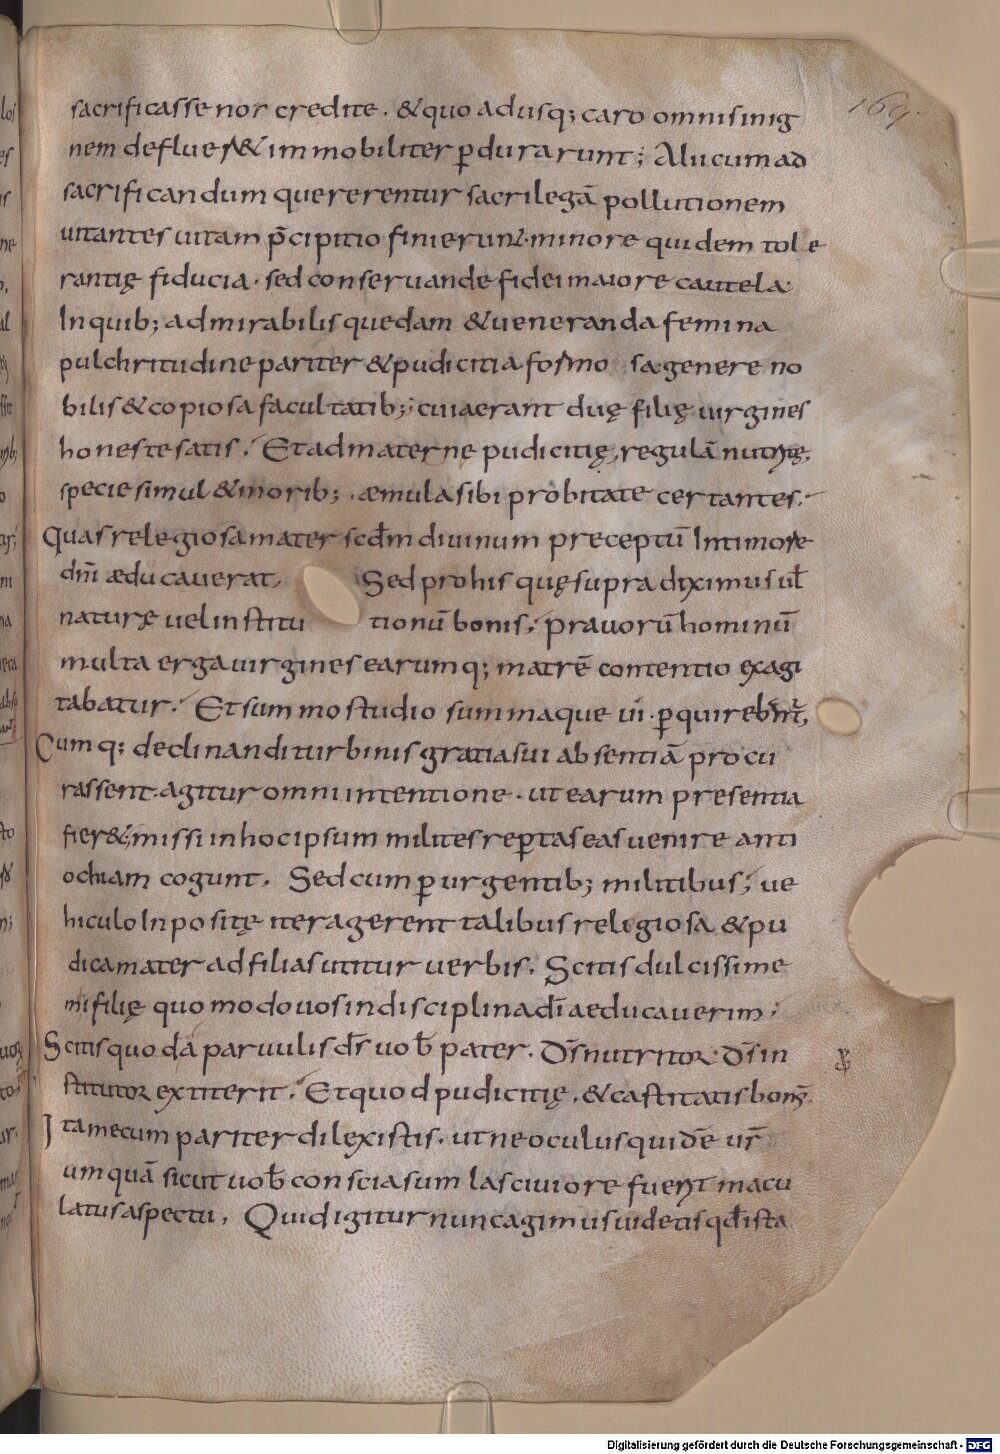 169
sacrificasse nor credite. & quo adusq; caro omnis inig
nem deflueret & immobiliter p̱durarunt; Alii cum ad
sacrificandum quererentur sacrilegā pollutionem
uitantes uitam p̄cipitio finierunt. minore quidem tole
rantię fiducia. sed conseruande fidei maiore cautela.
In quib; admirabilis quedam & ueneranda femina
pulchritudine pariter & pudicitia formo sa. genere no
bilis & copiosa facultatib; cui aerant duę filię uirgines
honeste satis. Et ad maternę pudicitię, regulā nutritę,
specie simul & morib; æmula sibi probitate certantes.
Quas relegiosa mater scd̄m diuinum preceptū In timore
dn̄i æducauerat. Sed pro his quę supra diximus ul̄
naturę uel institu tionū bonis, prauorū hominū
multa erga uirgines earumq; matrē contentio exagi
tabatur. Et summo studio summaque ui p̱quirebant̄,
Cumq; declinandi turbinis gratia sui absentiā procu
rassent. agitur omni intentione. ut earum presentia
fier&; missi in hoc ipsum milites rep̱tas eas uenire anti
ochiam cogunt. Sed cum p̱urgentib; militibus, ue
hiculo Inpositę iter agerent talibus relegiosa & pu
dica mater ad filias utitur uerbis. Scitis dulcissime
mi filię quomodo uos in disciplina dī aeducauerim;
Scitis quod a paruulis ds̄ uob̄ pater. Ds̄ nutritor. Ds̄ in
stitutor extiterit. Et quod pudicitię, & castitatis bonū
Ita mecum pariter dilexistis. ut ne oculus quidē ur̄
umquā sicut uob̄ conscia sum lasciuiore fuerit macu
latus aspectu. Quid igitur nunc agimus uidetis qd̄ ista
Digitalisierung gefördert durch die Deutsche Forschungsgemeinschaft - DFG